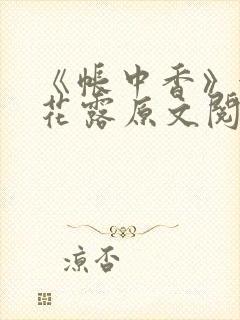 《帐中香》
花露原文阅
凉否